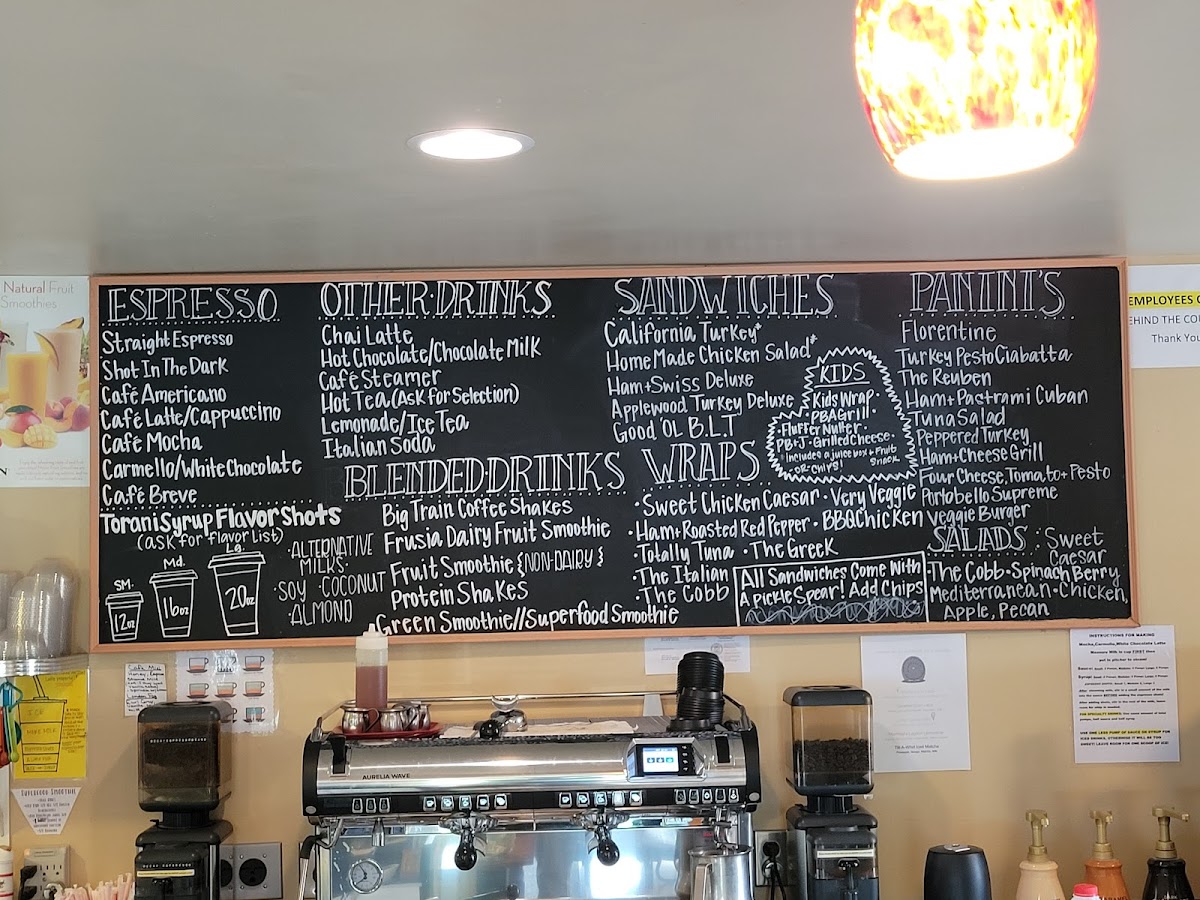 Natural Fruit
Smoothies
ESPRESSO
Straight Espresso
Shot In The Dark
Café Americano
Café Latte/Cappuccino
Café Mocha
Carmello/White Chocolate
Café Breve
Torani Syrup Flavor Shots
(ask for flavor List)
SM.
12oz
Md.
16oz
Lg.
20oz
·ALTERNATIVE
MILKS·
·SOY ·COCONUT
·ALMOND
OTHER·DRINKS
Chai Latte
Hot Chocolate/Chocolate Milk
Café Steamer
Hot Tea (Ask for Selection)
Lemonade/Ice Tea
Italian Soda
BLENDED·DRINKS
Big Train Coffee Shakes
Frusia Dairy Fruit Smoothie
Fruit Smoothie {NON-DAIRY}
Protein Shakes
Green Smoothie//Superfood Smoothie
SANDWICHES
California Turkey*
HomeMade Chicken Salad*
Ham+Swiss Deluxe
Applewood Turkey Deluxe
Good 'OL B.L.T
KIDS
Kids Wrap·
PBA Grill·
·Fluffer Nutter·
PB+J·Grilled Cheese·
*includes a juice box + Fruit
OR·chips! Snack
WRAPS
·Sweet Chicken Caesar·Very Veggie
·Ham+Roasted Red Pepper·BBQ Chicken
·Totally Tuna ·The Greek
·The Italian
·The Cobb
All Sandwiches Come With
A Pickle Spear! Add Chips
PANINI'S
Florentine
Turkey Pesto Ciabatta
The Reuben
Ham+Pastrami Cuban
Tuna Salad
Peppered Turkey
Ham+Cheese Grill
Four Cheese, Tomato+Pesto
Portobello Supreme
Veggie Burger
SALADS:Sweet
Caesar
·The Cobb·Spinach Berry
Mediterranean·Chicken,
Apple, Pecan
EMPLOYEES O
EHIND THE COU
Thank You
AURELIA WAVE
INSTRUCTIONS FOR MAKING
Mocha, Carmello, White Chocolate Latte